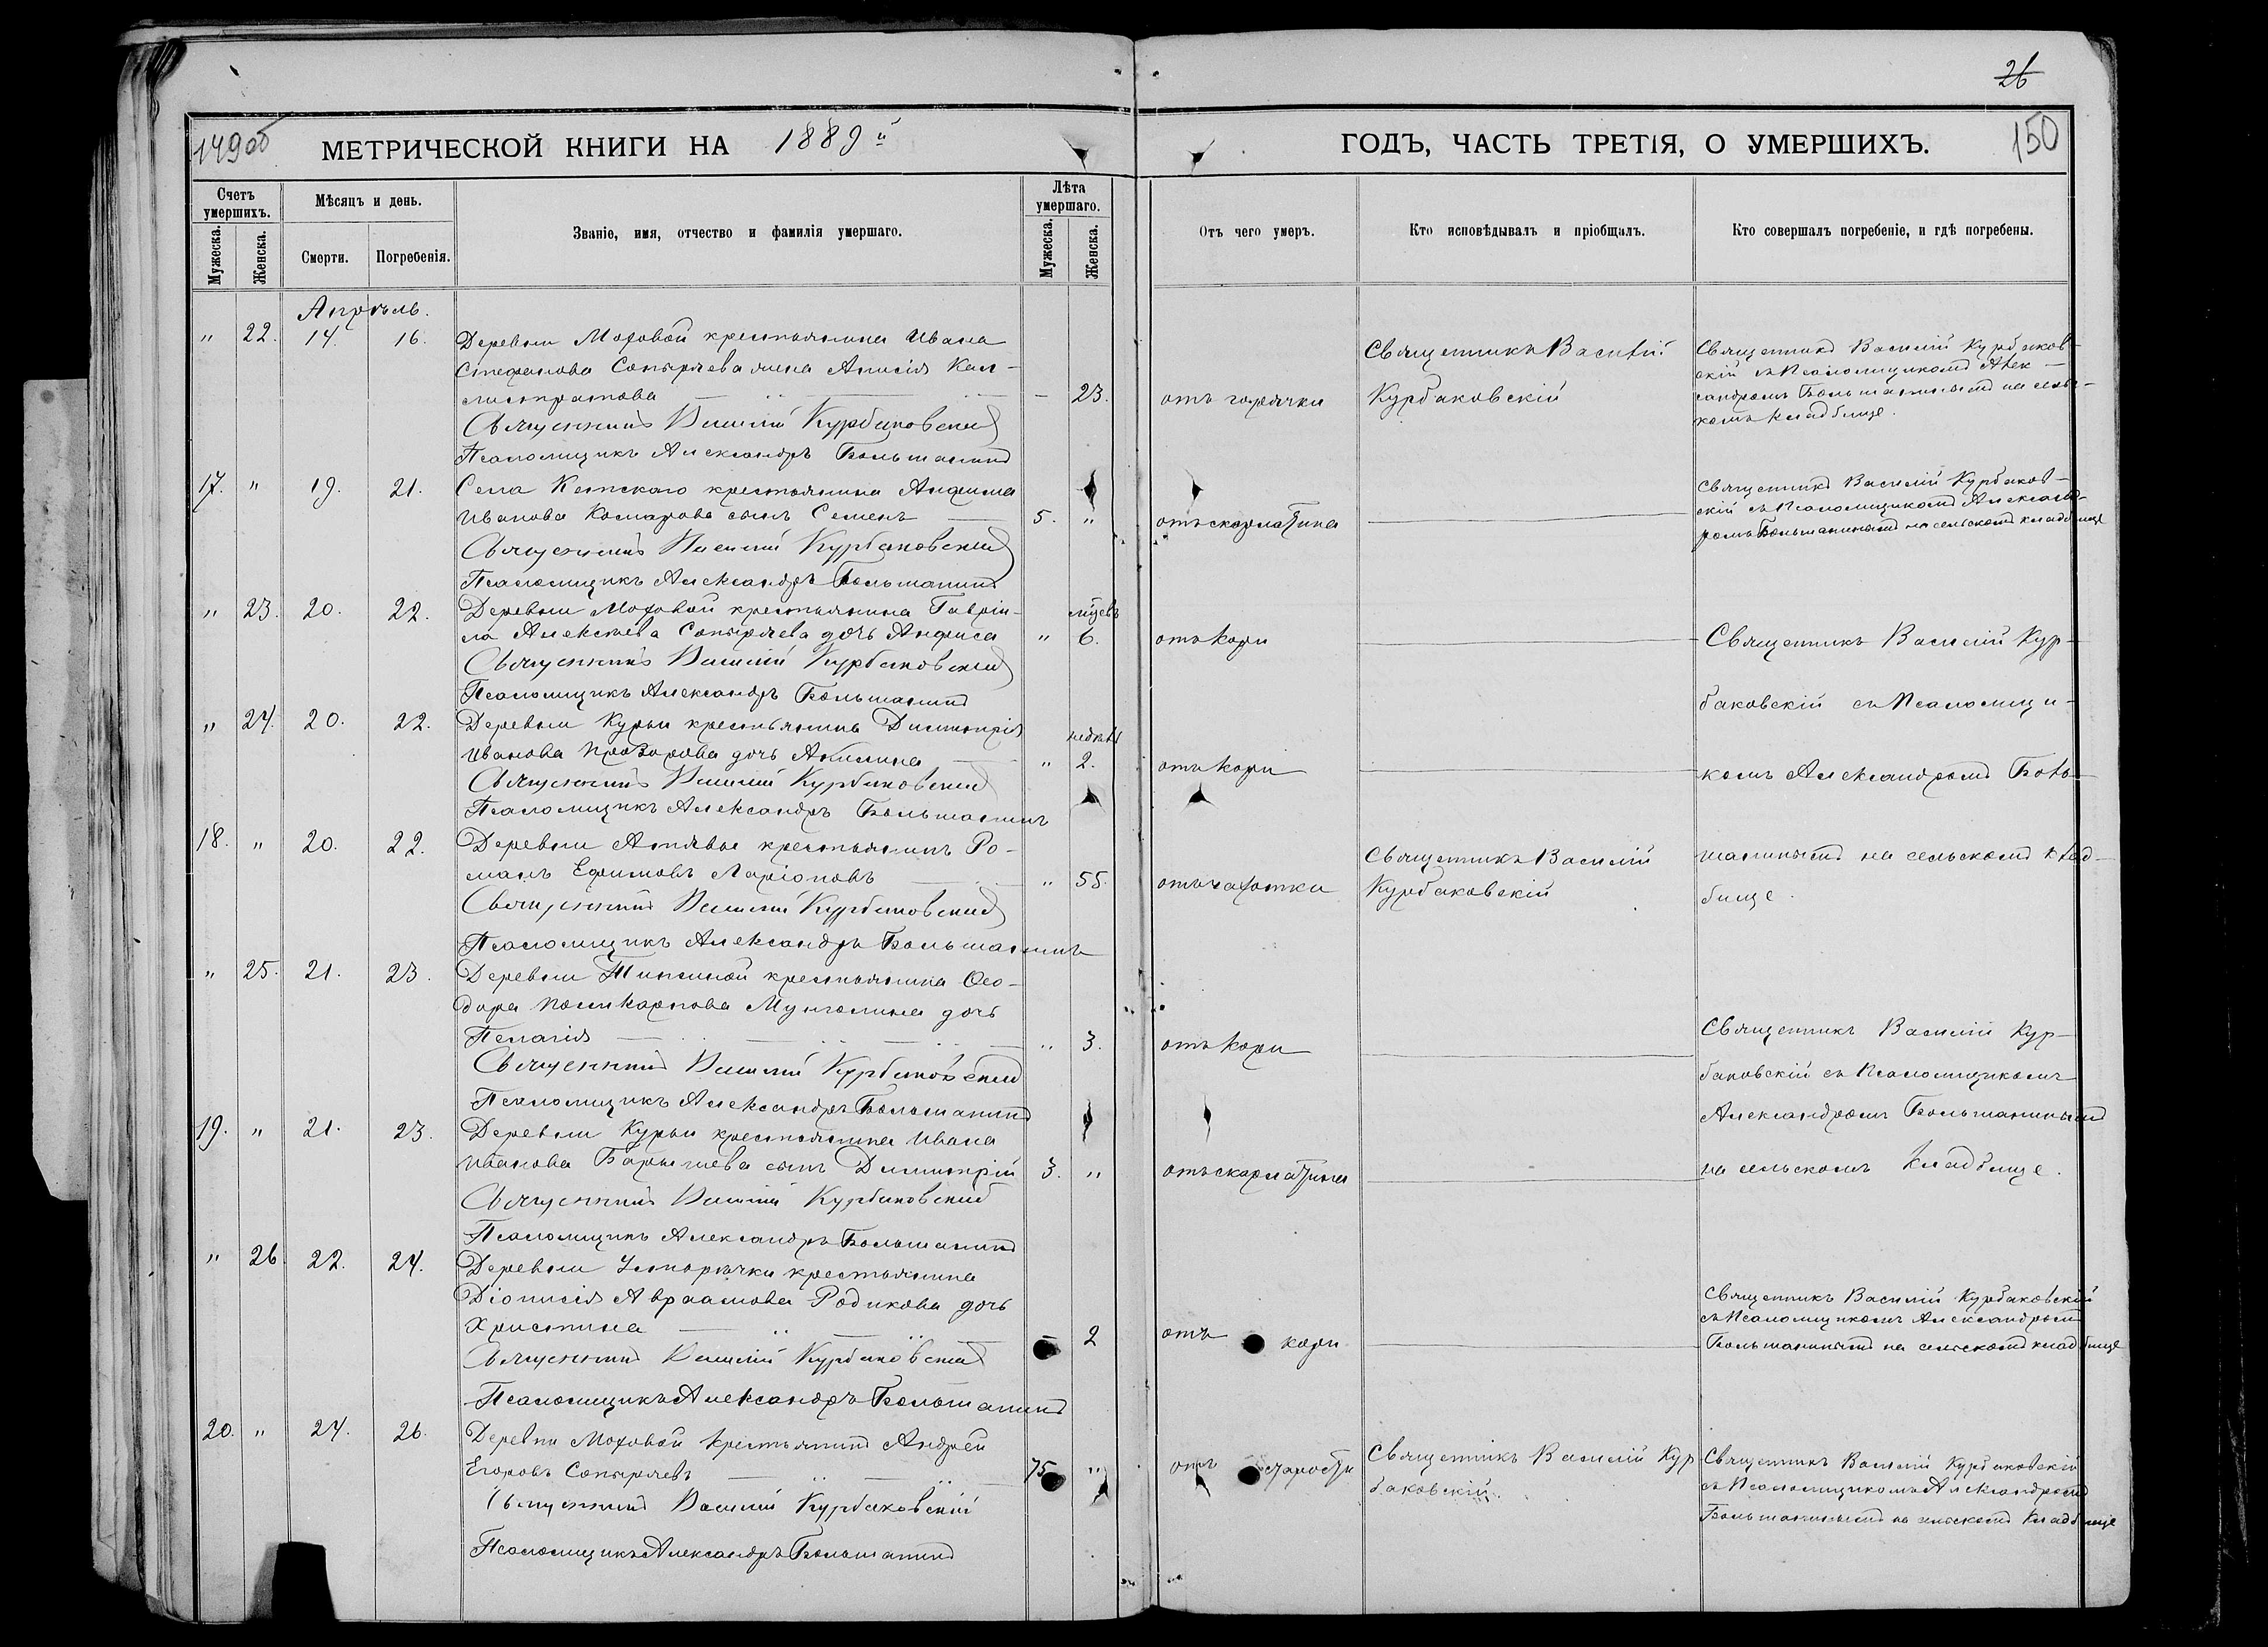 26
149об
МЕТРИЧЕСКОЙ КНИГИ НА 1889й
ГОДЪ, ЧАСТЬ ТРЕТІЯ, О УМЕРШИХЪ.
150
Счетъ умершихъ.
Мѣсяцъ и день.
Званіе, имя, отчество и фамилія умершаго.
Лѣта умершаго.
Отъ чего умеръ.
Кто исповѣдывалъ и пріобщалъ.
Кто совершалъ погребеніе, и гдѣ погребены.
Мужеска.
Женска.
Смерти.
Погребенія.
Мужеска.
Женска.
Апрѣль.
" 22. 14. 16.
Деревни Моховой крестьянина Ивана
Стефанова Сопыряева жена Анисія Кал-
листратова — 23.
отъ горячки
Священникъ Василій
Курбаковскій
Священникъ Василій Курбаков-
скій съ Псаломщикомъ Алек-
сандромъ Большанинымъ на сель-
комъ кладбище.
Священникъ Василій Курбаковскій
Псаломщикъ Александръ Большанинъ
17. " 19. 21.
Села Кетскаго крестьянина Анфима
Иванова Комарова сынъ Семенъ 5. "
отъ скарлатина
Священникъ Василій Курбаков-
скій съ Псаломщикомъ Алексан-
ромъ Большанинымъ на сельскомъ кладбище
Священникъ Василій Курбаковскій
Псаломщикъ Александръ Большанинъ
" 23. 20. 22.
Деревни Моховой крестьянина Гавріи-
ла Алексѣева Сопыряева дочь Анфиса " мѣсевъ 6.
отъ кори
Священникъ Василій Кур-
Священникъ Василій Курбаковскій
Псаломщикъ Александръ Большанинъ
баковскій съ Псаломщи-
" 24. 20. 22.
Деревни Курьи крестьянина Димитрія
Иванова Прозорова дочь Акилина " недѣль 2.
отъ кори
комъ Александромъ Боль-
Священникъ Василій Курбаковскій
Псаломщикъ Александръ Большанинъ
18. " 20. 22.
Деревни крестьянинъ Ро-
манъ Ефимовъ Ларіоновъ " 55.
отъ чахотки
Священникъ Василій
Курбаковскій
шанинымъ на сельскомъ клад-
бище.
Священникъ Василій Курбаковскій
Псаломщикъ Александръ Большанинъ
" 25. 21. 23.
Деревни крестьянина Ѳео-
дора Поликарпова Мунголина дочь
Пелагія " 3.
отъ кори
Священникъ Василій Кур-
баковскій съ Псаломщикомъ
Священникъ Василій Курбаковскій
Псаломщикъ Александръ Большанинъ
Александромъ Большанинымъ
19. " 21. 23.
Деревни Курьи крестьянина Ивана
Иванова Барышева сынъ Димитрій 3. "
отъ скарлатины
на сельскомъ кладбище.
Священникъ Василій Курбаковскій
Псаломщикъ Александръ Большанинъ
" 26. 22. 24.
Деревни крестьянина
Діонисія Авраамова Родикова дочь
Христина — 2
отъ кори
Священникъ Василій Курбаковскій
съ Псаломщикомъ Александромъ
Большанинымъ на сельскомъ кладбище
Священникъ Василій Курбаковскій
Псаломщикъ Александръ Большанинъ
20. " 24. 26.
Деревни Моховой крестьянинъ Андрей
Егоровъ Сопыряевъ 75 "
отъ старости
Священникъ Василій Кур
баковскій.
Священникъ Василій Курбаковскій
съ Псаломщикомъ Александромъ
Большанинымъ на сельскомъ кладбище
Священникъ Василій Курбаковскій
Псаломщикъ Александръ Большанинъ